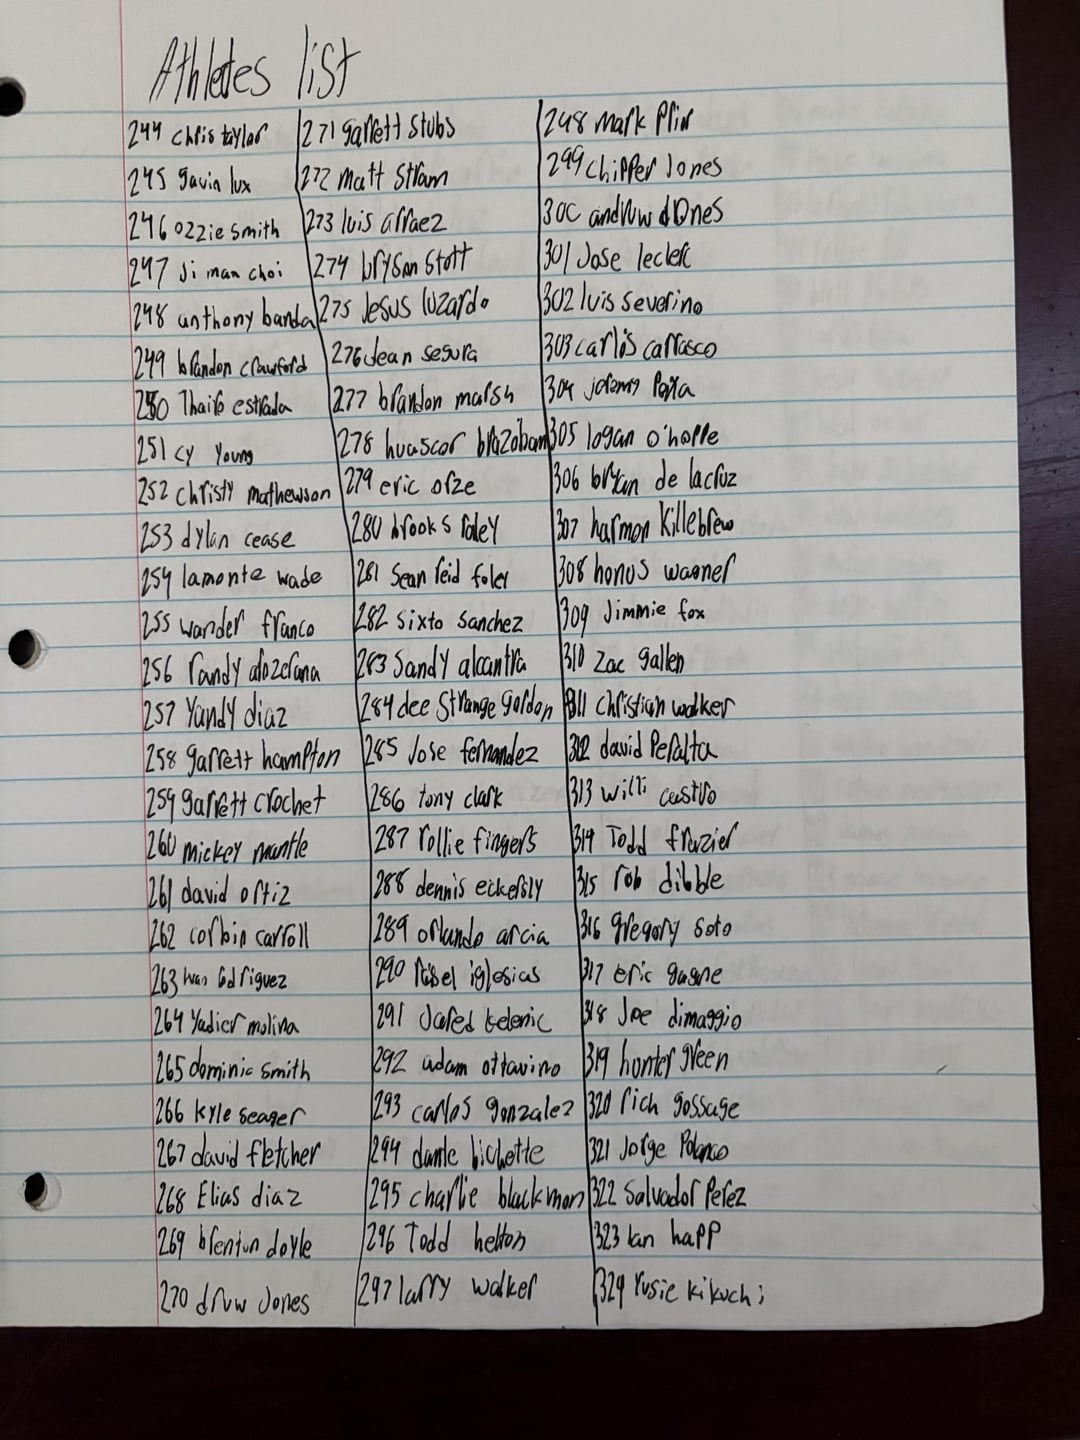 Athletes list
244 chris taylor
245 gavin lux
246 ozzie smith
247 Ji man choi
248 anthony banda
249 brandon crawford
250 Thairo estrada
251 cy young
252 christy mathewson
253 dylan cease
254 lamonte wade
255 wander franco
256 randy
257 Yandy diaz
258 garrett hampton
259 garrett crochet
260 mickey mantle
261 david ortiz
262 corbin carroll
263
264 Yadier molina
265 dominic smith
266 kyle seager
267 david fletcher
268 Elias diaz
269 brenton doyle
270 druw Jones
271 garrett Stubs
272 Matt Stram
273 luis arraez
274 bryson Stott
275 Jesus luzardo
276 Jean segura
277 brandon marsh
278 huascor brazoban
279 eric orze
280 brooks raley
281 Sean reid foley
282 sixto sanchez
283 Sandy alcantra
284 dee Strange gordon
285 Jose fernandez
286 tony clark
287 rollie fingers
288 dennis eckersly
289 orlando arcia
290 iglesias
291 Jared kelenic
292 adam ottavino
293 carlos gonzalez
294 dante bichette
295 charlie blackmon
296 Todd helton
297 larry walker
248 Mark Prior
299 chipper Jones
300 andruw JOnes
301 Jose leclerc
302 luis severino
303 carlos carrasco
304 Jeremy Peña
305 logan o'hoppe
306 bryan de lacruz
307 harmon Killebrew
308 honus wagner
309 Jimmie fox
310 Zac gallen
311 christian walker
312 david Peralta
313 willi castro
314 Todd frazier
315 rob dibble
316 gregory soto
317 eric gagne
318 Joe dimaggio
319 hunter green
320 rich gossage
321 Jorge Polanco
322 Salvador Perez
323 Ian happ
324 Yusie kikuchi